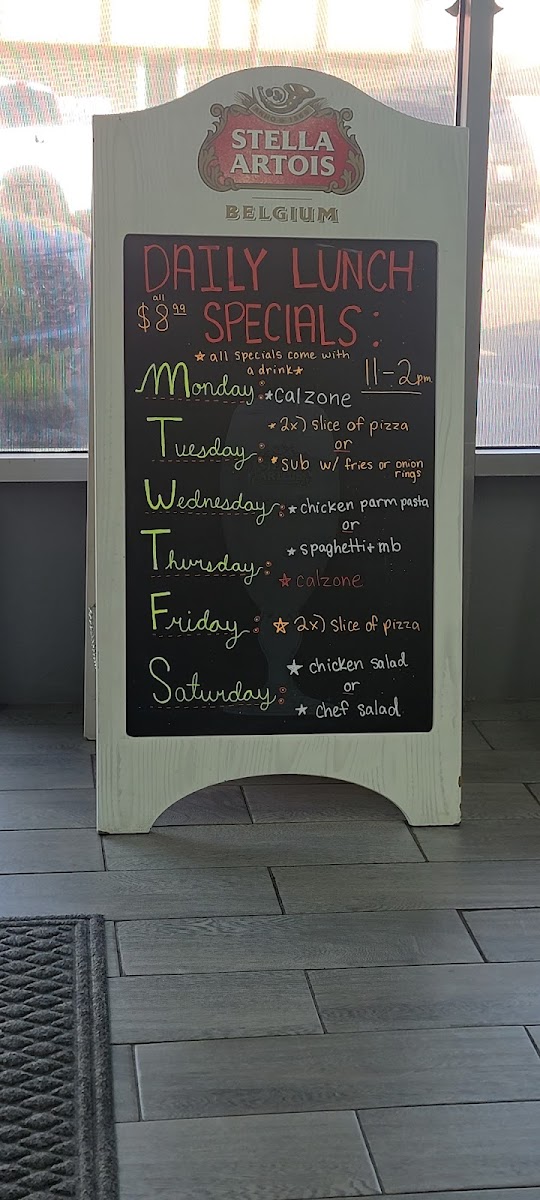 STELLA
ARTOIS
BELGIUM
DAILY LUNCH
all
$8.99 SPECIALS:
☆ all specials come with
a drink☆
11-2pm
Monday: ☆calzone
☆ 2x) slice of pizza
Tuesday: or
☆ sub w/ fries or onion
rings
Wednesday: ☆ chicken parm pasta
or
☆ spaghetti + mb
Thursday: ☆ calzone
Friday: ☆ 2x) slice of pizza
☆ chicken salad
Saturday: or
☆ chef salad